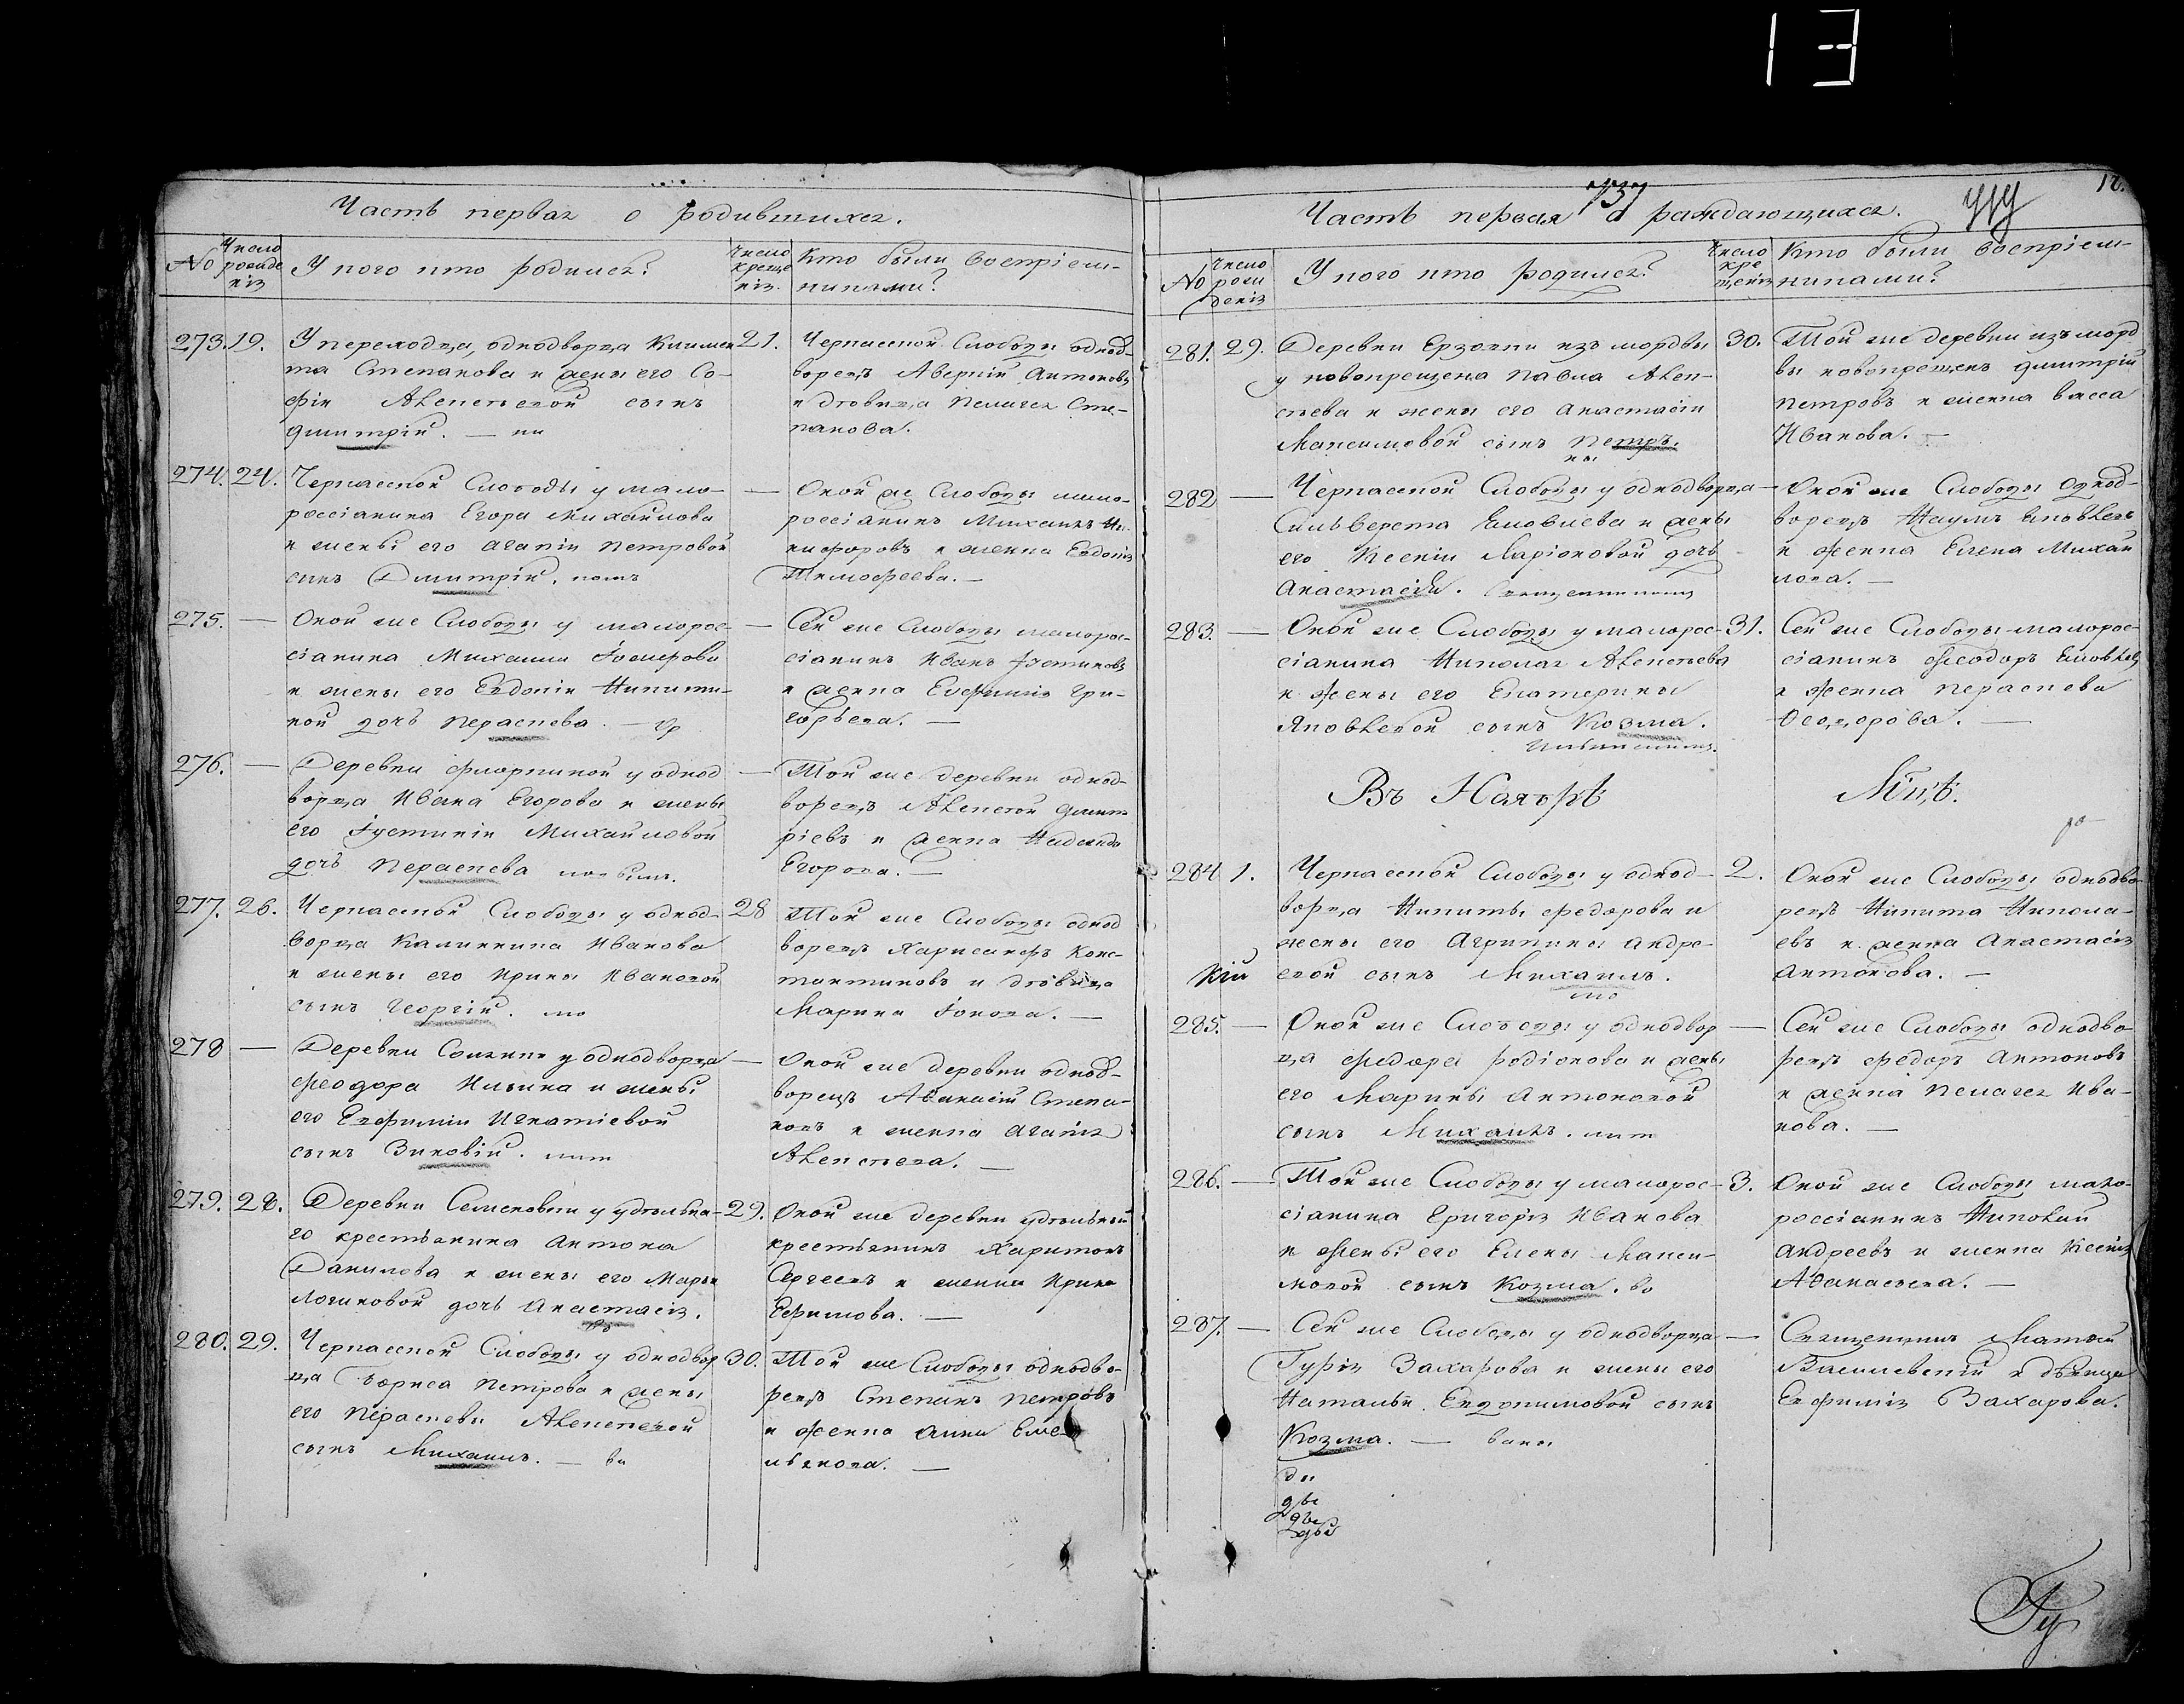 13
Часть первая о родившихся.
№
Число рожде нія
У кого кто родился?
Число креще нія.
Кто были воспріем-
никами?
273. 19. У переходца, однодворца Климен
та Степанова и жены его Со-
фіи Алексѣевой сынъ
Димитрій. —
21. Черкасской Слободы одно-
ворецъ Аверкій Антоновъ
и дѣвица Пелагея Сте-
панова.
274. 24. Черкасской Слободы у мало-
россіянина Егора Михайлова
и жены его Агапіи Петровой
сынъ Димитрій.
— Оной же Слободы мало-
россіянинъ Михаилъ Ни-
кифоровъ и женка Евдокія
Тимофеева. —
275. — Оной же Слободы у малорос-
сіянина Михаила Іосифова
и жены его Евдокіи Никити-
ной дочь Параскева. —
— Сей же Слободы малорос-
сіянинъ Иванъ Іустиновъ
и женка Евфимія Гри-
горьева. —
276. — Деревни у однод
ворца Ивана Егорова и жены
его Іустиніи Михайловой
дочь Параскева
— Той же деревни однод-
ворецъ Алексѣй Димит
ріевъ и женка Надежда
Егорова. —
277. 26. Черкасской Слободы у однод-
ворца Калинника Иванова
и жены его Ирины Ивановой
сынъ Георгій.
28 Той же Слободы однод
ворецъ Харисамфъ Конс-
тантиновъ и дѣвица
Марина Іонова. —
278 — Деревни у однодворца
Феодора Ильина и жены
его Евфиміи Игнатіевой
сынъ Зиновій.
— Оной же деревни однод-
ворецъ Аѳанасій Степа-
новъ и женка Агафія
Алексѣева. —
279. 28. Деревни Семеновки у удѣльна-
го крестьянина Антона
Данилова и жены его Марьи
Логиновой дочь Анастасія.
29. Оной же деревни удѣльный
крестьянинъ Харитонъ
Сергеевъ и женка Ирина
Ефимова. —
280. 29. Черкасской Слободы у однодвор
ца Бориса Петрова и жены
его Параскевы Алексѣевой
сынъ Михаилъ. —
30. Той же Слободы однодво-
рецъ Степанъ Петровъ
и женка Анна Еме-
льянова. —
Часть первая о раждающихся.
№
Число рож деніз
У кого кто родился?
Число кре щенія
Кто были воспріем-
никами?
281. 29. Деревни Ерзовки изъ мордвы
у новокрещена Павла Алек-
сѣева и жены его Анастасіи
Максимовой сынъ Петръ.
30. Той же деревни изъ морд
вы новокрещенъ Димитрій
Петровъ и женка Васса
Иванова. —
282 — Черкасской Слободы у однодворца
Сильверста Яковлева и жены
его Ксеніи Ларіоновой дочь
Анастасія.
— Оной же Слободы однод-
ворецъ Наумъ Яковлевъ
и женка Елена Михаи
лова. —
283. — Оной же Слободы у малорос-
сіянина Николая Алексѣева
и жены его Екатерины
Яковлевой сынъ Козма.
31. Сей же Слободы малорос-
сіянинъ Феодоръ Яковлевъ
и женка Параскева
Ѳеодорова. —
Въ Ноябрѣ Мцѣ.
284 1. Черкасской Слободы у однод-
ворца Никиты Федорова и
жены его Агрипины Андре-
евой сынъ Михаилъ.
2. Оной же Слободы однодво-
рецъ Никита Никола-
евъ и женка Анастасія
Антонова. —
285. — Оной же Слободы у однодвор
ца Федора Родіонова и жены
его Марины Антоновой
сынъ Михаилъ.
— Сей же Слободы однодво-
рецъ Федоръ Антоновъ
и женка Пелагея Ива-
нова. —
286. — Той же Слободы у малорос-
сіянина Григорія Иванова
и жены его Елены Макси-
мовой сынъ Козма.
3. Оной же Слободы мало-
россіянинъ
Андреевъ и женка Ксенія
Аѳанасьева. —
287. — Сей же Слободы у однодворца
Гурія Захарова и жены его
Натальи Евдокимовой сынъ
Козма. —
— Священникъ Матѳей
Василевскій и дѣвица
Евфимія Захарова.